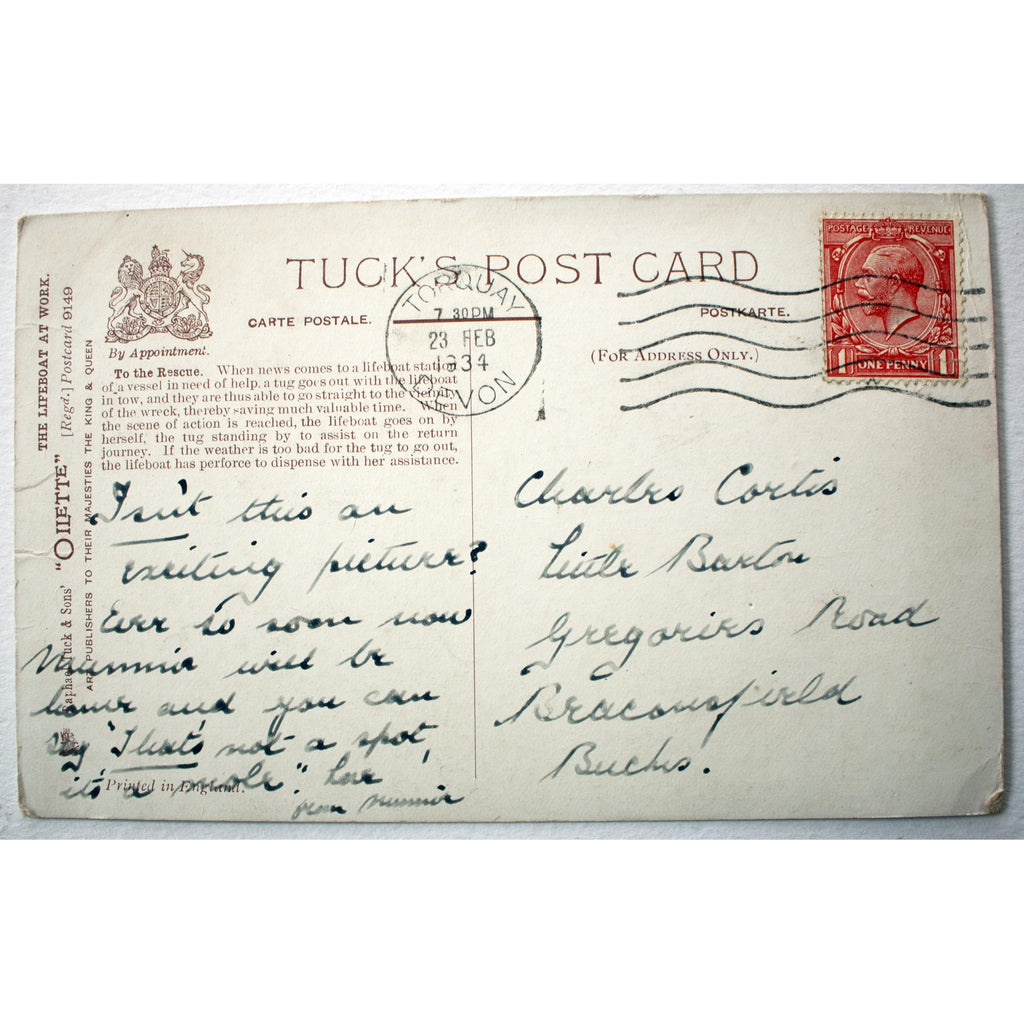 TUCK'S POST CARD
CARTE POSTALE.
POSTKARTE.
(FOR ADDRESS ONLY.)
By Appointment.
TORQUAY
7 30PM
23 FEB
1934
DEVON
POSTAGE REVENUE
1 ONE PENNY 1
THE LIFEBOAT AT WORK.
[Regd.] Postcard 9149
"OILETTE"
Raphael Tuck & Sons'
ART PUBLISHERS TO THEIR MAJESTIES THE KING & QUEEN
To the Rescue. When news comes to a lifeboat station
of a vessel in need of help, a tug goes out with the lifeboat
in tow, and they are thus able to go straight to the vicinity
of the wreck, thereby saving much valuable time. When
the scene of action is reached, the lifeboat goes on by
herself, the tug standing by to assist on the return
journey. If the weather is too bad for the tug to go out,
the lifeboat has perforce to dispense with her assistance.
Isn't this an
exciting picture?
Ever so soon now
Mummie will be
home and you can
say "That's not a spot,
it's a mole". Love
from Mummie
Printed in England.
Charles Cortis
Little Barton
Gregories Road
Beaconsfield
Bucks.